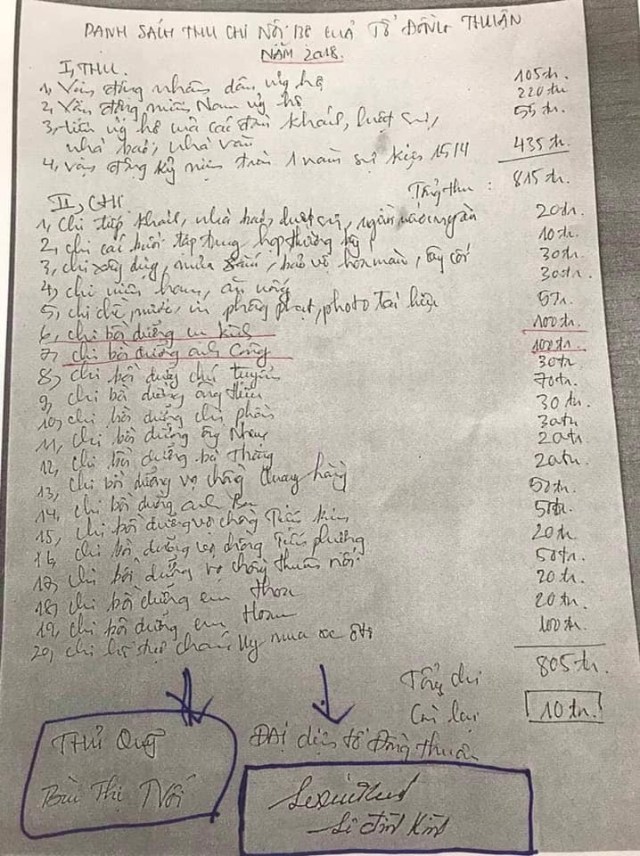 DANH SÁCH THU CHI NỘI BỘ CỦA TỔ ĐỒNG THUẬN
NĂM 2018.
I, THU.
1, Vận động nhân dân ủng hộ 105tr.
2, Vận động miền Nam ủng hộ 220tr
3, tiền ủng hộ của các đoàn khách, luật sư, 55tr.
nhà báo, nhà văn
4, vận động kỷ niệm tròn 1 năm sự kiện 15/4 435tr.
Tổng thu: 815tr.
II, CHI
1, Chi tiếp khách, nhà báo, luật sư, 20tr.
2, chi các buổi tập trung, họp thường kỳ 10tr.
3, chi xây dựng, mua sắm, 30tr.
4, chi ăn uống 30tr.
5, chi chè, nước, in phông phạt, photo tài liệu 5tr.
6, chi bồi dưỡng cụ Kình 100tr.
7, chi bồi dưỡng anh Công 100tr.
8, chi bồi dưỡng chú Tuyển 30tr.
9, chi bồi dưỡng ông Hiểu 70tr.
10, chi bồi dưỡng 30tr.
11, chi bồi dưỡng ông 30tr
12, chi bồi dưỡng bà 20tr.
13, chi bồi dưỡng vợ chồng Quang 20tr.
14, chi bồi dưỡng anh 50tr.
15, chi bồi dưỡng vợ chồng Tiến 50tr.
16, chi bồi dưỡng vợ chồng Tiến 20tr.
17, chi bồi dưỡng vợ chồng 50tr.
18, chi bồi dưỡng em 20tr.
19, chi bồi dưỡng em 20tr.
20, chi mua xe ôtô 100tr.
Tổng chi 805tr.
Còn lại 10tr.
THỦ QUỸ
Bùi Thị Nối
ĐẠI diện tổ Đồng thuận
Lê Đình Kình